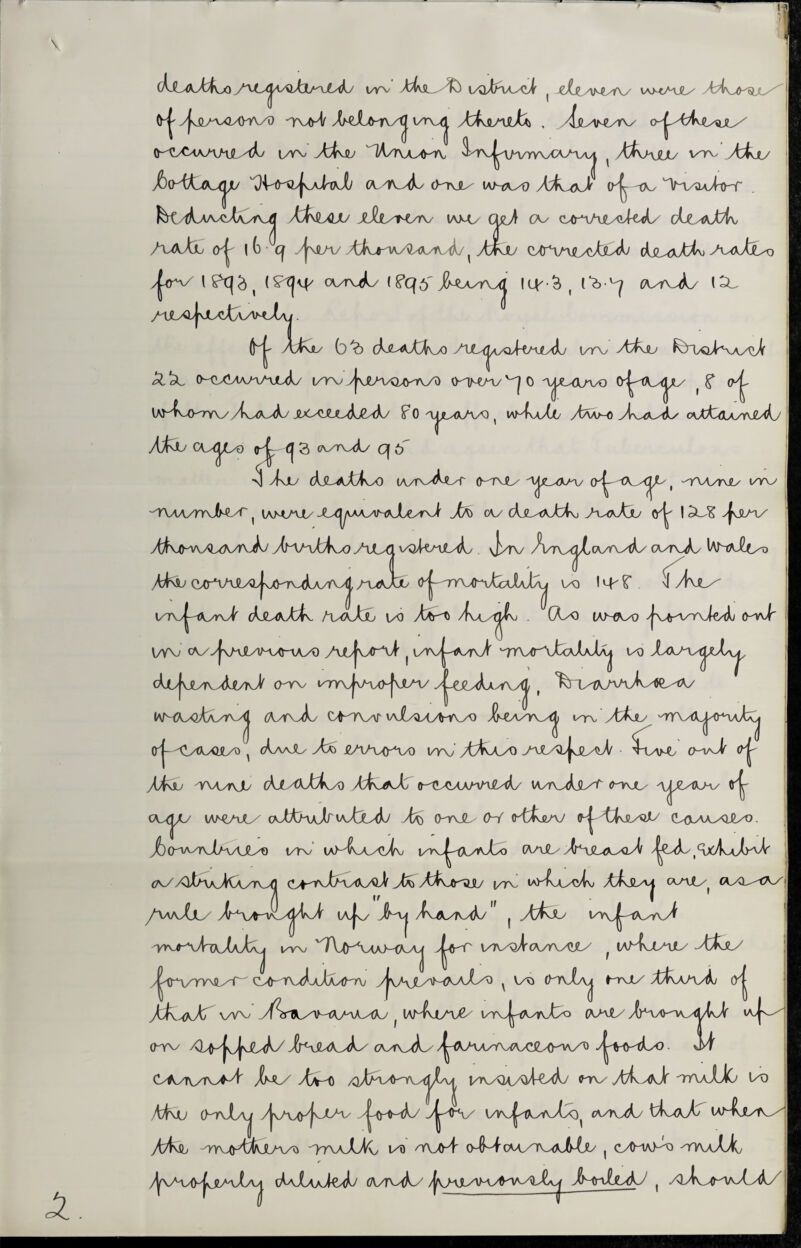 deaths registered in the District, eleven were those
of persons not belonging thereto. Seven of these
occurred in the Union Infirmary, three in the
Cottage Hospital and one was that of a Visitor.
Deducting these eleven we get a corrected death
rate of 16.9 per thousand, the corrected death rates
for 1893, 1894 and 1895 being 14.3, 13.7 and 12
respectively.
Of the 63 deaths registered in the District
22 occurred in persons over 70 years of age, 8 of
whom had exceeded 80 years, while two had attained
the ages of 93 and 95
The deaths under one year of age, nine in
number, were equivalent to a death rate of 128 per
thousand births registered. In England and Wales
the corresponding rate of mortality is 148. The
infant death rate is too high. As was pointed out
in a previous report, infant mortality is largely
dependent on improper feeding, Diarrhœa
wasting and convulsions being in the majority
of cases, due to errors in this respect. Five out of
the nine deaths that occurred under one year of
age were attributed to one or other of these causes.
Countries in which infants are breast fed, exhibit
a striking contrast to those in which they are, as a
rule brought up "by hand", the infant
mortality in Norway for instance, where the
former condition prevails, is only one third of
that in Bavaria, where infants are brought up
on sopped bread and farinaceous foods. It
cannot be too strongly insisted on that milk is
the only proper food for infants, and that when
the mothers milk is not obtainable, cow's milk
properly diluted and previously boiled, should
2.